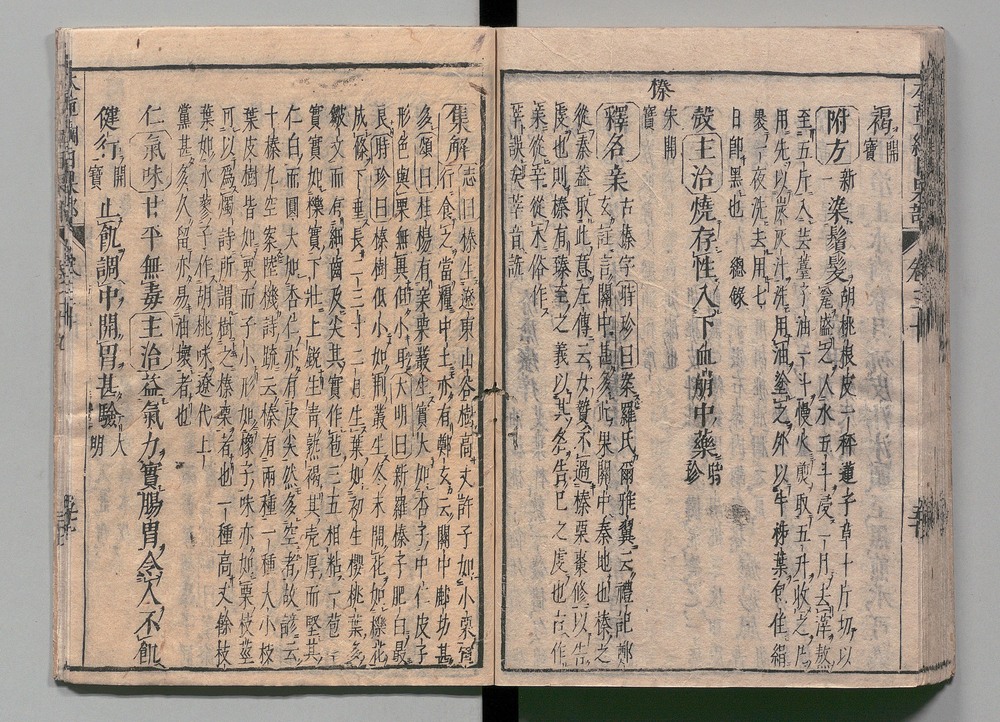 褐開寶
附方新一 染鬚髮 胡桃根皮一秤蓮子草十斤切以
甕盛之入水五斗浸一月去滓熬
至五升入芸薹子油一斗慢火煎取五升收之凡
用先以炭灰汁洗用油塗之外以牛蒡葉包住絹
裹一夜洗去用七
日即黑也 總錄
殼主治燒存性入下血崩中藥時珍
榛
宋開
寶
釋名亲 古榛字時珍曰亲羅氏爾雅翼云禮記鄭
玄註言關中甚多此果關中秦地也榛之
從秦蓋取此意左傳云女贄不過榛栗棗修以告
虔也則榛有臻至之義以其名告己之虔也古作
亲從辛從木俗作
莘誤矣莘音詵
集解 志曰榛生遼東山谷樹高丈許子如小栗軍
行食之當糧中土亦有鄭玄云關中鄜坊甚
多頌曰桂楊有亲栗叢生實大如杏子中仁皮子
形色與栗無異但小耳大明曰新羅榛子肥白最
良時珍曰榛樹低小如荊叢生冬末開花如櫟花
成條下垂長二三寸二月生葉如初生櫻桃葉多
皺文而有細齒及尖其實作苞三五相粘一苞一
實實如櫟實下壯上銳生青熟褐其殼厚而堅其
仁白而圓大如杏仁亦有皮尖然多空者故諺云
十榛九空案陸機詩疏云榛有兩種一種大小枝
葉皮樹皆如栗而子小形如橡子味亦如栗枝莖
可以爲燭詩所謂樹之榛栗者也一種高丈餘枝
葉如水蓼子作胡桃味遼代上
黨甚多久留亦易油壞者也
仁氣味甘平無毒主治益氣力實腸胃令人不飢
健行開寶止飢調中開胃甚驗大明